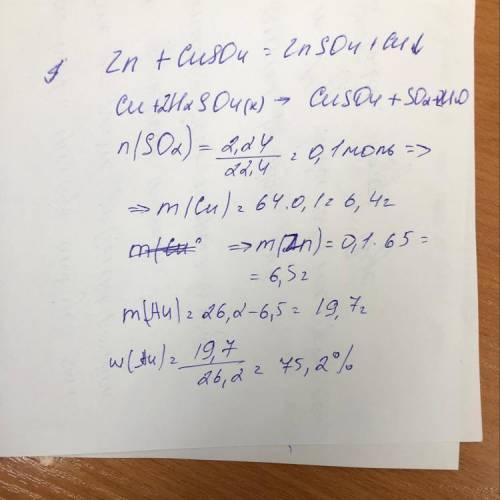 Zn + CuSO4 = ZnSO4 + Cu↓
Cu + 2H2SO4(к) → CuSO4 + SO2 + 2H2O
n(SO2) = 2,24 / 22,4 = 0,1 моль =>
=> m(Cu) = 64 · 0,1 = 6,4г
m(Cu) => m(Zn) = 0,1 · 65 =
= 6,5г
m(Au) = 26,2 - 6,5 = 19,7г
w(Au) = 19,7 / 26,2 = 75,2%